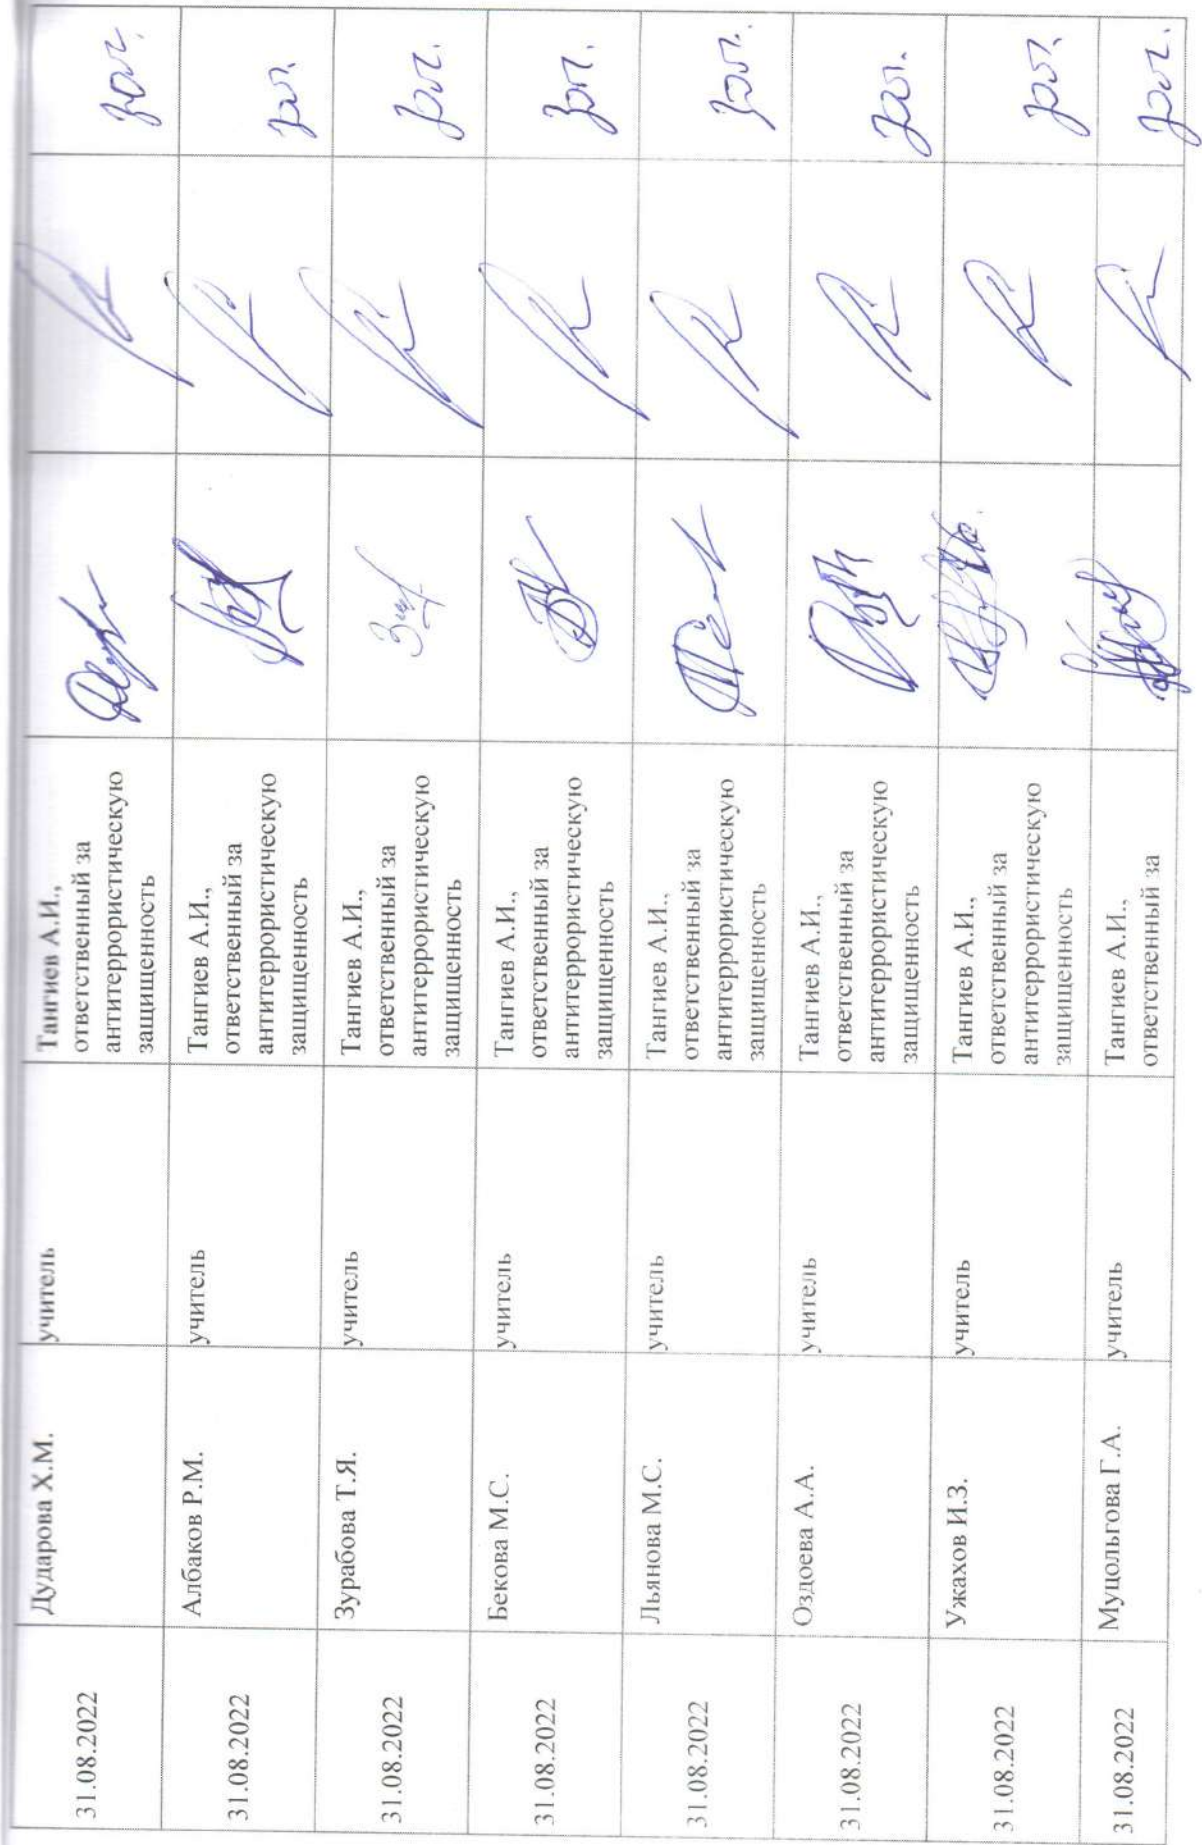 31.08.2022
Дударова Х.М.
учитель
Тангиев А.И.,
ответственный за
антитеррористическую
защищенность
зач.
31.08.2022
Албаков Р.М.
учитель
Тангиев А.И.,
ответственный за
антитеррористическую
защищенность
зач.
31.08.2022
Зурабова Т.Я.
учитель
Тангиев А.И.,
ответственный за
антитеррористическую
защищенность
зач.
31.08.2022
Бекова М.С.
учитель
Тангиев А.И.,
ответственный за
антитеррористическую
защищенность
зач.
31.08.2022
Льянова М.С.
учитель
Тангиев А.И.,
ответственный за
антитеррористическую
защищенность
зач.
31.08.2022
Оздоева А.А.
учитель
Тангиев А.И.,
ответственный за
антитеррористическую
защищенность
зач.
31.08.2022
Ужахов И.З.
учитель
Тангиев А.И.,
ответственный за
антитеррористическую
защищенность
зач.
31.08.2022
Муцольгова Г.А.
учитель
Тангиев А.И.,
ответственный за
зач.